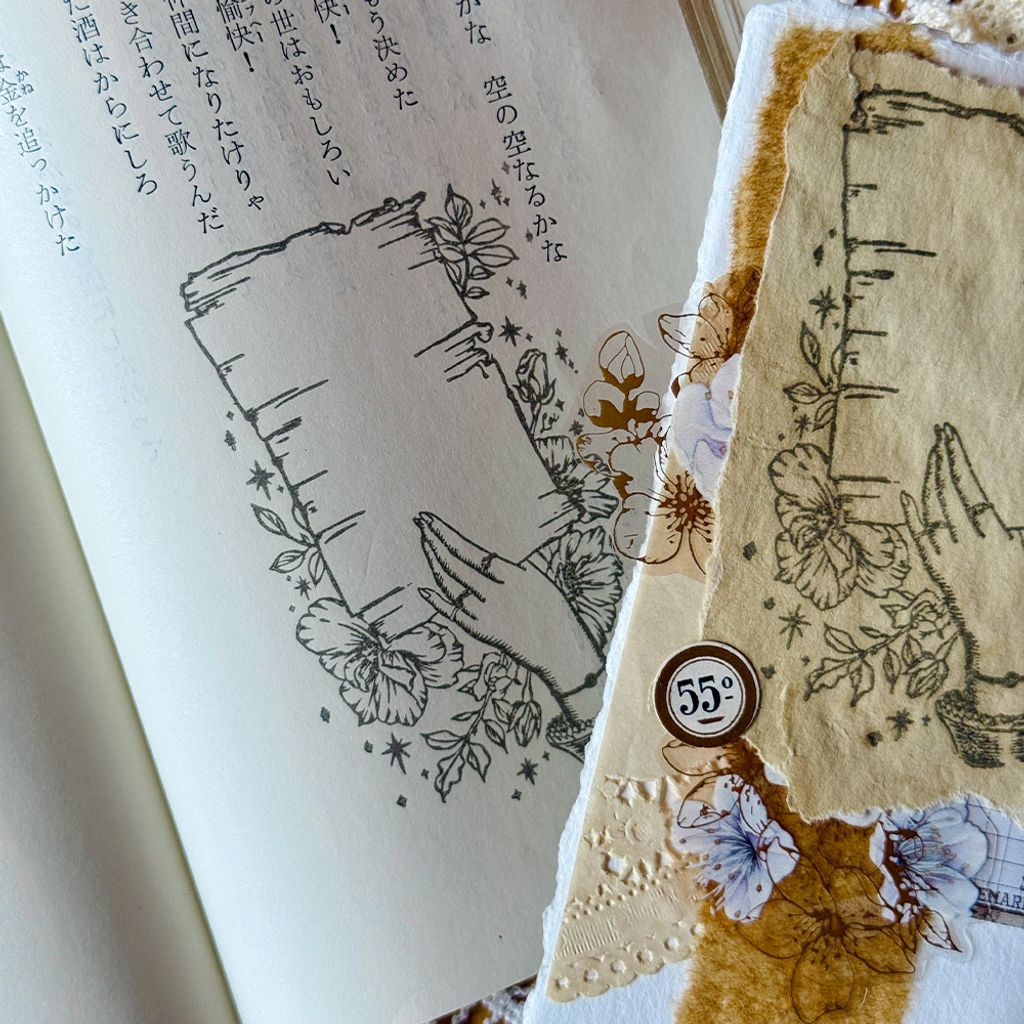 かな　空の空なるかな
もう決めた
快！
の世はおもしろい
愉快！
仲間になりたけりゃ
き合わせて歌うんだ
た酒はからにしろ
金を追っかけた
55º
EMAR